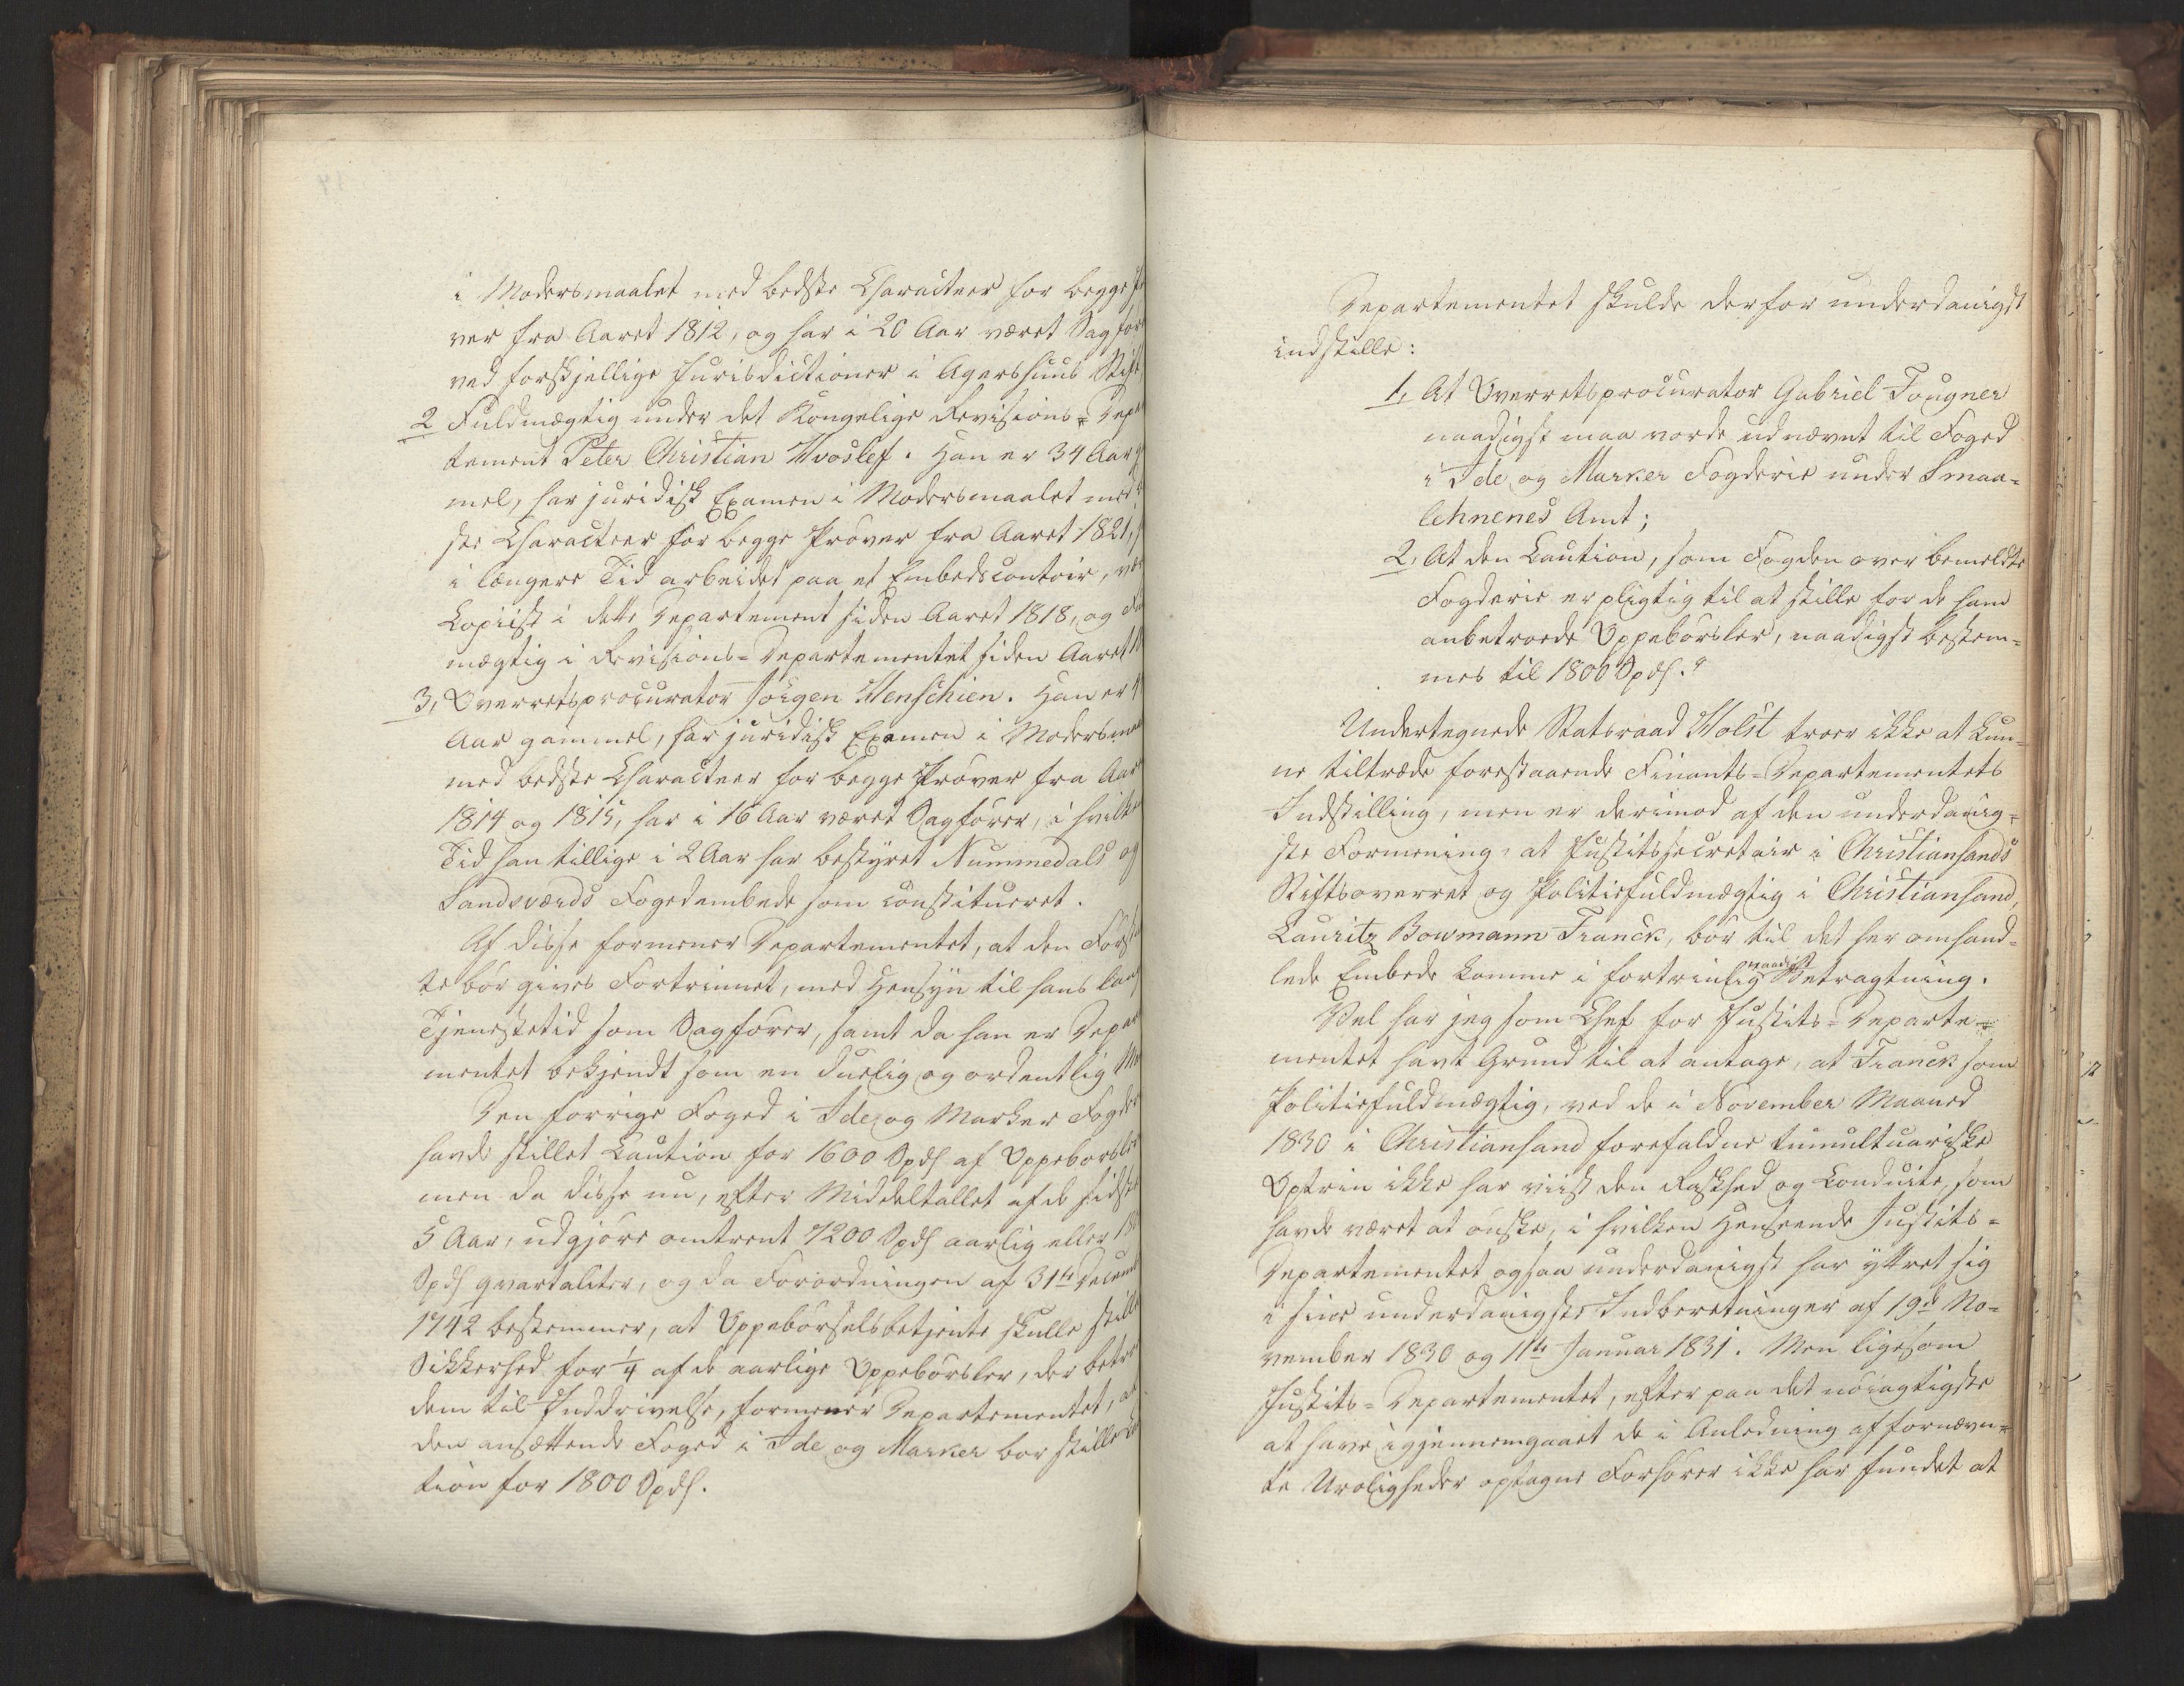 i Modersmaalet med bedste Characteer for begge
ver fra Aaret 1812, og har i 20 Aar været Sagfør
ved forskjellige Jurisdictioner i Agershuus Stift
2 Fuldmægtig under det Kongelige Revisions-Depar
tement Peter Christian Hvoslef. Han er 34 Aar
mel, har juridisk Examen i Modersmaalet med
ste Characteer for begge Prøver fra Aaret 1821,
i længere Tid arbeidet paa et Embedscontoir, vær
Copiist i dette Departement siden Aaret 1818, og
mægtig i Revisions-Departementet siden Aaret
3, Overretsprocurator Jørgen Wenschien. Han er
Aar gammel, har juridisk Examen i Modersmaa
med bedste Characteer for begge Prøver fra Aar
1814 og 1815, har i 16 Aar været Sagfører, i hvilke
Tid han tillige i 2 Aar har bestyret Nummedals og
Sandsværds Fogedembede som constitueret.
Af disse formener Departementet, at den Førs
te bør gives Fortrinnet, med Hensyn til hans lan
Tjenestetid som Sagfører, samt da han er Depar
mentet bekjendt som en duelig og ordentlig
Den forrige Foged i Ide og Marker Fogder
havde stillet Caution for 1600 Spds af Oppebørsler
men da disse nu, efter Middeltallet af de sidste
5 Aar, udgjøre omtrent 7200 Spds aarlig eller
Spds qvartaliter, og da Forordningen af 31te Decemb
1742 bestemmer, at Oppebørselsbetjente skulle stille
Sikkerhed for 1/4 af de aarlige Oppebørsler, der betro
dem til Inddrivelse, formener Departementet, at
den ansættende Foged i Ide og Marker bør stille Cau
tion for 1800 Spds.
Departementet skulde derfor underdanigst
indstille:
1, At Overretsprocurator Gabriel Tougner
naadigst maa vorde udnævnt til Foged
i Ide og Marker Fogderie under Smaa-
lehnenes Amt;
2, At den Caution, som Fogden over bemeldte
Fogderie er pligtig til at stille for de ham
anbetroede Oppebørsler, naadigst bestem-
mes til 1800 Spds."
Undertegnede Statsraad Holst troer ikke at kun-
ne tiltræde forestaaende Finants-Departementets
Indstilling, men er derimod af den underdanig-
ste Formening, at Justitssecretair i Christiansands
Stiftsoverret og Politiefuldmægtig i Christiansand,
Lauritz Bowmann Franck, bør til det her omhand-
lede Embede komme i fortrinlig naadigst Betragtning.
Vel har jeg som Chef for Justits-Departe-
mentet havt Grund til at antage, at Franck som
Politiefuldmægtig, ved de i November Maaned
1830 i Christiansand forefaldne tumultuariske
Optrin ikke har viist den Raskhed og Conduite, som
havde været at ønske, i hvilken Henseende Justits-
Departementet ogsaa underdanigst har yttret sig
i sine underdanigste Indberetninger af 19de No-
vember 1830 og 11te Januar 1831. Men ligesom
Justits-Departementet, efter paa det nøiagtigste
at have igjennemgaaet de i Anledning af fornævn-
te Uroligheder optagne Forhører ikke har fundet at